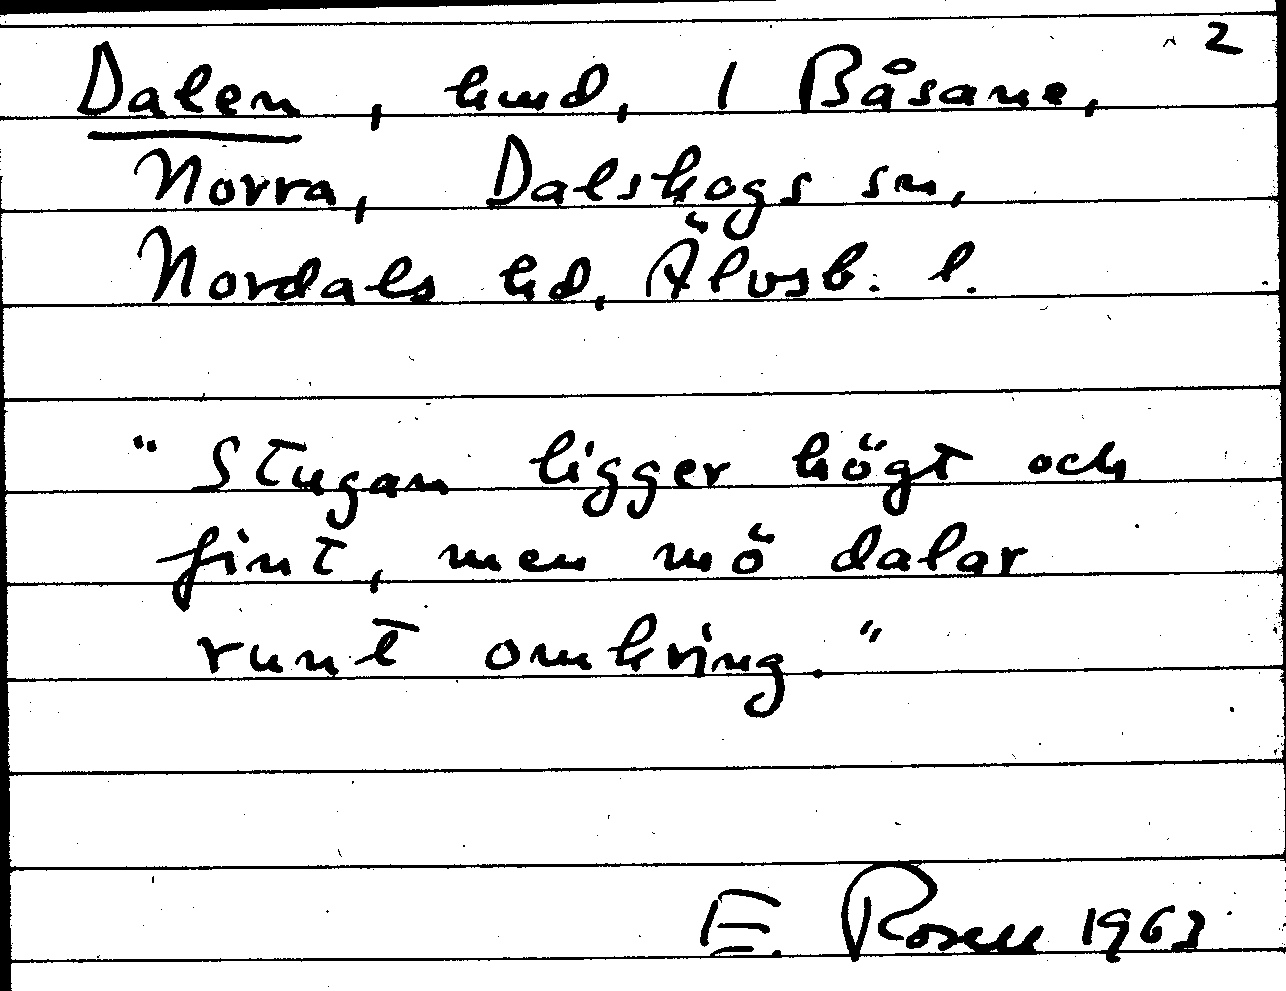 2
Dalen, hmd, 1 Båsane,
Norra, Dalskogs sn,
Nordals hd, Älvsb. l.
"Stugan ligger högt och
fint, men mö dalar
runt omkring."
E. Rosell 1963